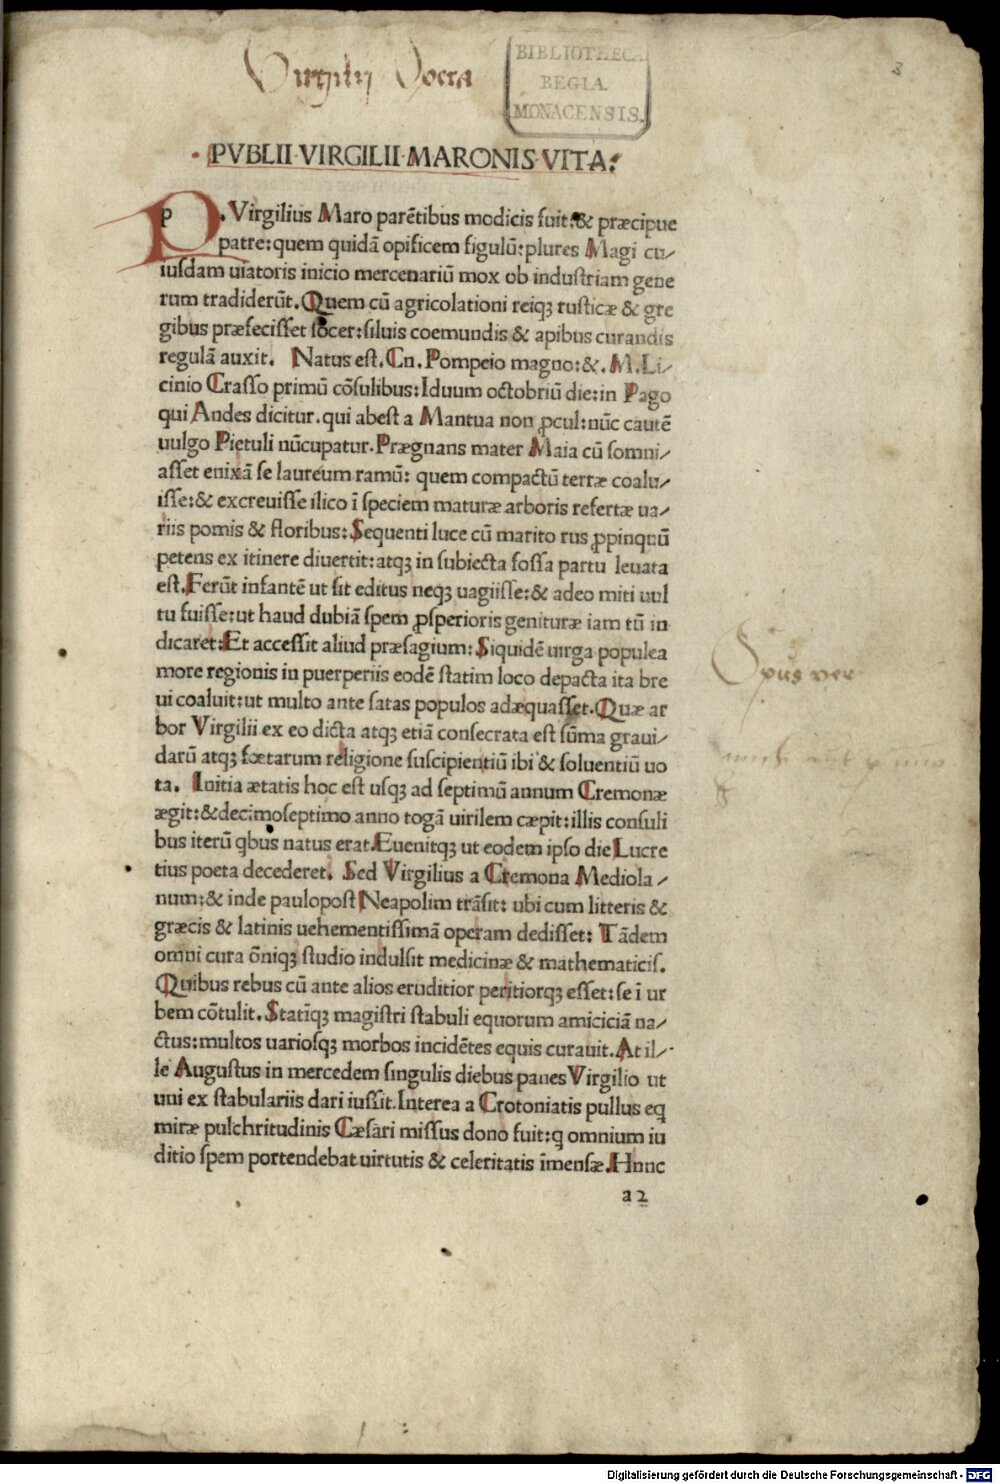 Virgilij Opera
BIBLIOTHECA
REGIA
MONACENSIS.
3
PVBLII·VIRGILII·MARONIS·VITA:
P. Virgilius Maro parētibus modicis fuit:& præcipue
patre:quem quidā opificem figulū:plures Magi cu/
iusdam uiatoris inicio mercenariū mox ob industriam gene
rum tradiderūt. Quem cū agricolationi reiqꝫ rusticæ & gre
gibus præfecisset socer:siluis coemundis & apibus curandis
regulā auxit. Natus est. Cn. Pompeio magno:&. M. Li/
cinio Crasso primū cōsulibus:Iduum octobriū die:in Pago
qui Andes dicitur.qui abest a Mantua non ꝓcul:nūc cautē
uulgo Pietuli nūcupatur. Prægnans mater Maia cū somni/
asset enixā se laureum ramū: quem compactū terræ coalu/
isse:& excreuisse ilico ī speciem maturæ arboris refertæ ua/
riis pomis & floribus: Sequenti luce cū marito rus ꝓpinquū
petens ex itinere diuertit:atqꝫ in subiecta fossa partu leuata
est. Ferūt infantē ut sit editus neqꝫ uagiisse:& adeo miti uul
tu fuisse:ut haud dubiā spem ꝓsperioris genituræ iam tū in
dicaret:Et accessit aliud præsagium: Siquidē uirga populea
more regionis in puerperiis eodē statim loco depacta ita bre
ui coaluit:ut multo ante satas populos adæquasset. Quæ ar
bor Virgilii ex eo dicta atqꝫ etiā consecrata est sūma graui/
darū atqꝫ fœtarum religione suscipientiū ibi & soluentiū uo
ta. Initia ætatis hoc est usqꝫ ad septimū annum Cremonæ
ægit:&decimoseptimo anno togā uirilem cæpit:illis consuli
bus iterū qbus natus erat. Euenitqꝫ ut eodem ipso die Lucre
tius poeta decederet. Sed Virgilius a Cremona Mediola/
num:& inde paulopost Neapolim trāsit: ubi cum litteris &
græcis & latinis uehementissimā operam dedisset: Tādem
omni cura ōniqꝫ studio indulsit medicinæ & mathematicis.
Quibus rebus cū ante alios eruditior peritiorqꝫ esset:se ī ur
bem cōtulit. Statīqꝫ magistri stabuli equorum amiciciā na/
ctus:multos uariosqꝫ morbos incidētes equis curauit. At il/
le Augustus in mercedem singulis diebus panes Virgilio ut
uni ex stabulariis dari iussit. Interea a Crotoniatis pullus eq
miræ pulchritudinis Cæsari missus dono fuit:q omnium iu
ditio spem portendebat uirtutis & celeritatis īmensæ. Hunc
a 2
Opus ver
Digitalisierung gefördert durch die Deutsche Forschungsgemeinschaft - DFG